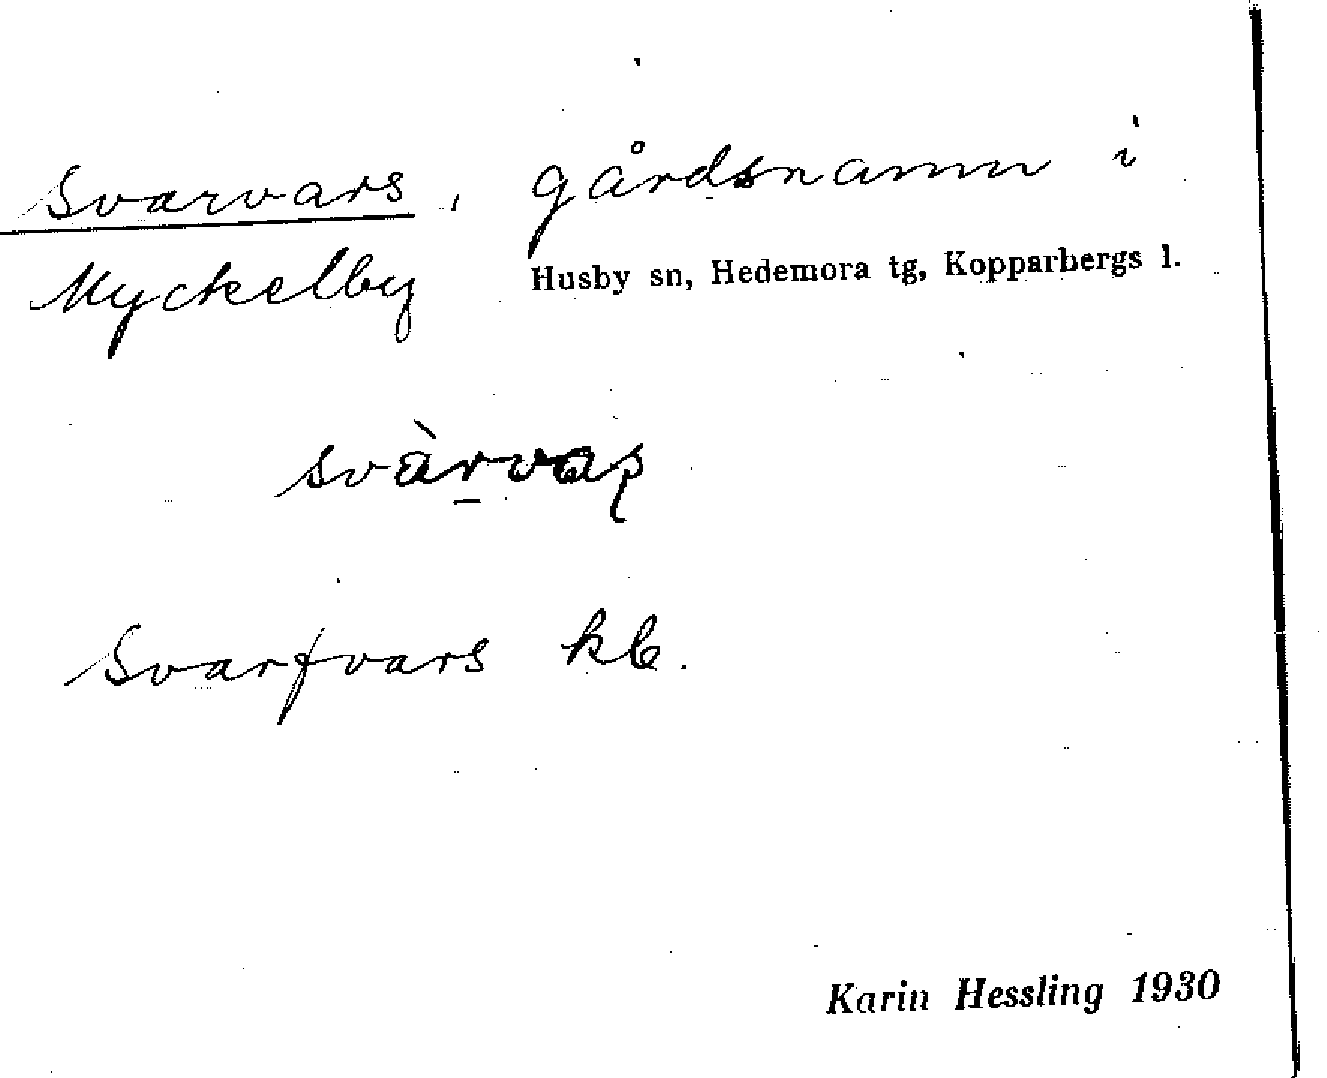 Svarvars, gårdsnamn i
Myckelby Husby sn, Hedemora tg, Kopparbergs l.
svàrvaʂ
Svarfvars kb.
Karin Hessling 1930